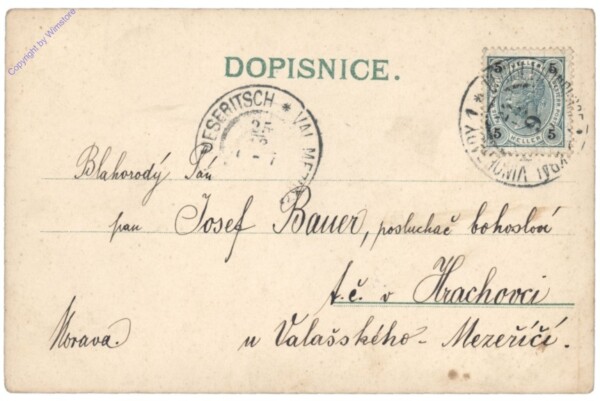 Copyright by Wimstore
DOPISNICE.
5 5
5 HELLER 5
MESERITSCH * VAL. MEZ
KRÁL. VINOHRADY 1 *
Blahorodý Pán
pan Josef Bauer, posluchač bohosloví
t.č. v Hrachovci
Morava. u Valašského-Mezeříčí.